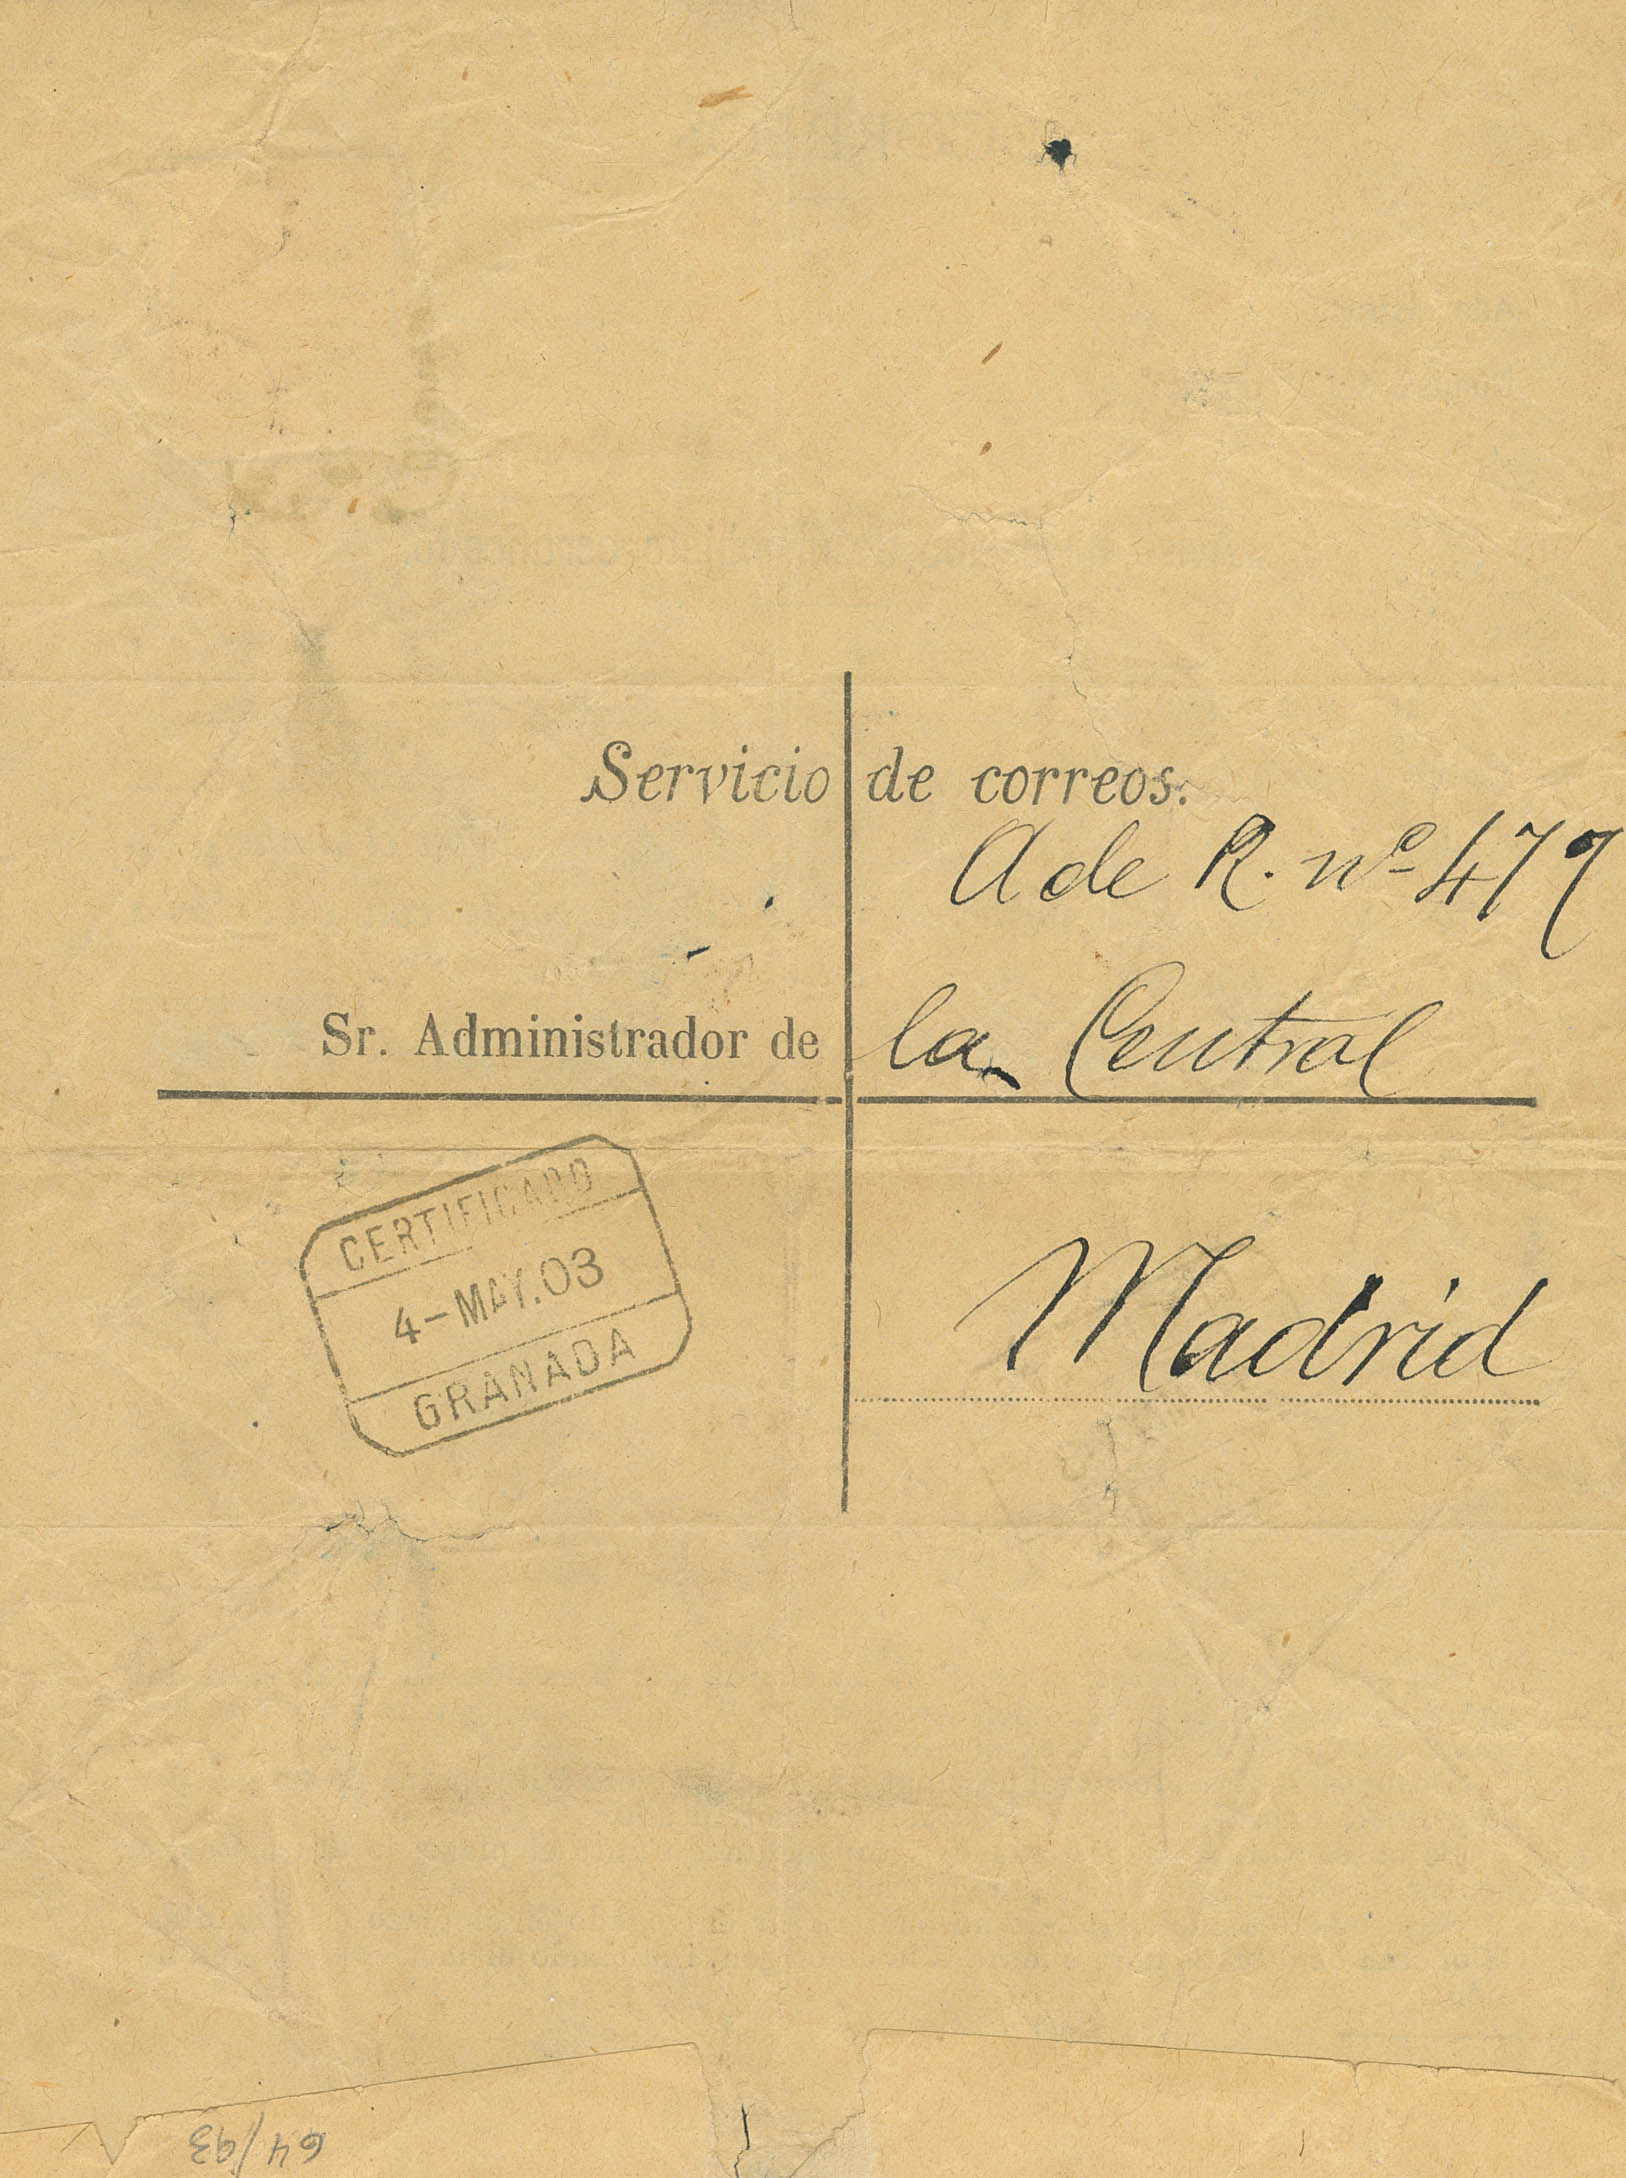 Servicio de correos.
A de R. nº 479
Sr. Administrador de la Central
Madrid
CERTIFICADO
4-MAY.03
GRANADA
64/93